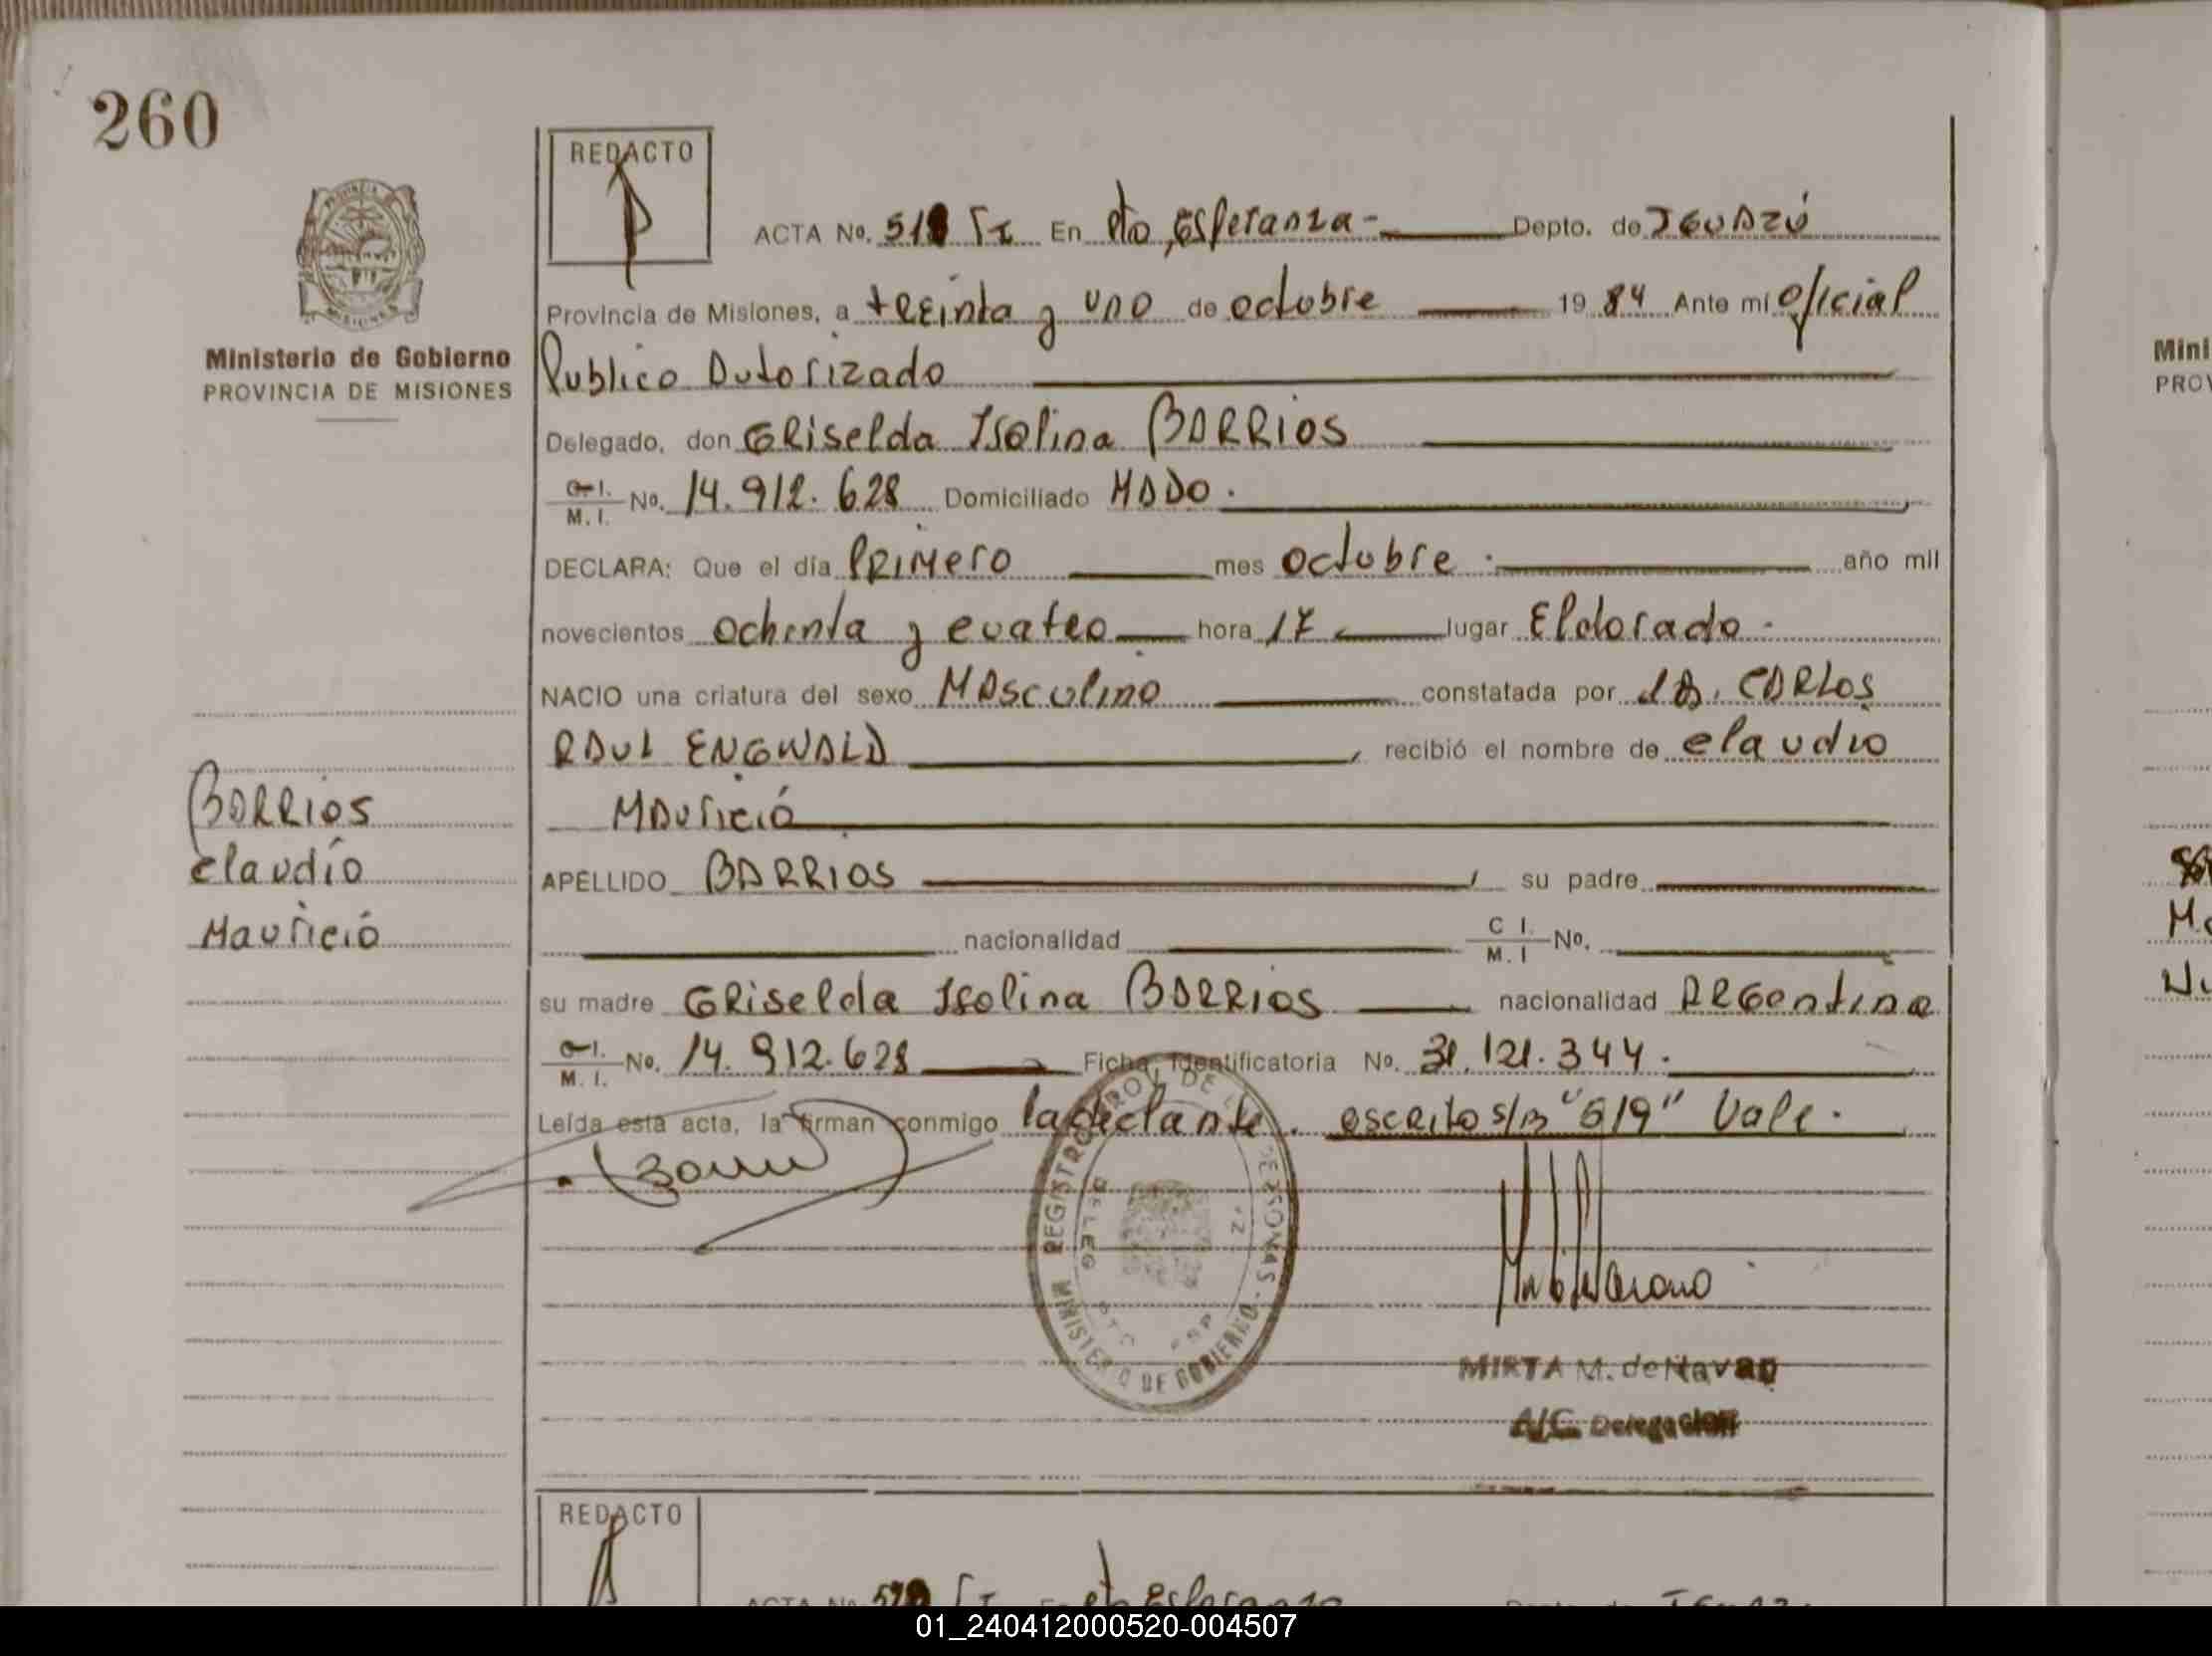 260
REDACTO
ACTA No. 519 TI En Pto Esperanza- Depto. de IGUAZÚ
Provincia de Misiones, a treinta y uno de octubre 19 84 Ante mi Oficial
Ministerio de Gobierno
PROVINCIA DE MISIONES
Publico Autorizado
Delegado, don GRiselda Isolina BARRIOS
C.I. M.I. No. 14.912.628 Domiciliado MADO.
DECLARA: Que el día PRIMERO mes octubre año mil
novecientos ochenta y cuatro hora 17 lugar Eldorado.
NACIO una criatura del sexo MAsculino constatada por CARLOS
RAUL ENGWALD, recibió el nombre de claudio
MAuricio
APELLIDO BARRIOS, su padre
nacionalidad C I. M. I No.
BARRIOS
claudio
Mauricio
su madre GRiselda Isolina BARRIOS nacionalidad ARGentina
C.I. M. I. No. 14.912.628 Ficha Identificatoria No. 31.121.344.
Leída esta acta, la firman conmigo la declante. escrito s/B "519" Vale.
REGISTRO PROV. DE LAS PERSONAS
MINISTERIO DE GOBIERNO
MIRTA M. de Navarro
A/C. Delegacion
REDACTO
ACTA No. Pto Esperanza
Mini
PROV
01_240412000520-004507